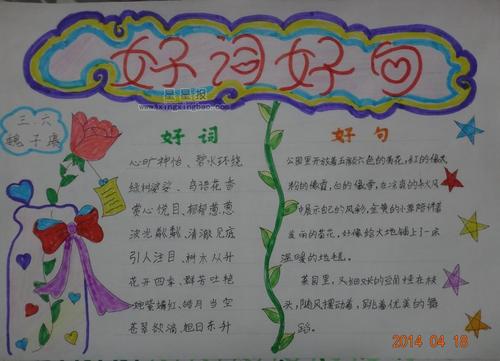 好词好句
星星报
www.xingxingbao.com
三、六
魏子康
好词
心旷神怡、碧水环绕
绿树婆娑、鸟语花香
赏心悦目、郁郁葱葱
波光粼粼、清澈见底
引人注目、树木丛升
花开四季、群芳吐艳
姹紫嫣红、皓月当空
苍翠欲滴、旭日东升
好句
公园里开放着五颜六色的菊花,红的像火
粉的像霞,白的像雪,在凉爽的秋风
中展示自己的风彩,金黄的小草陪伴着
美丽的菊花,好像给大地铺上了一床
温暖的地毯。
菜园里,又细又长的豆角挂在枝
头,随风摆动着,跳着优美的舞
蹈。
2014 04 18